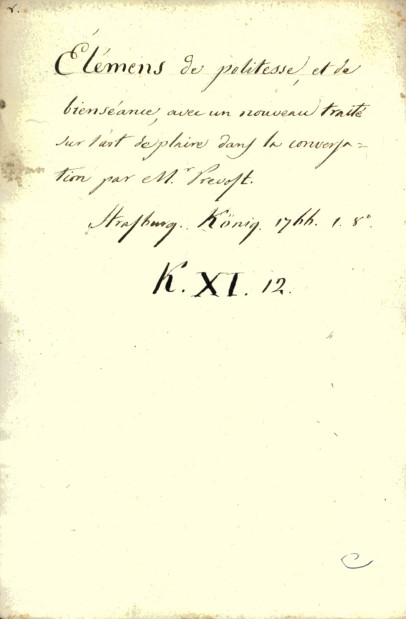 r.
Élémens de politesse, et de
bienséance, avec un nouveau traité
sur l'art de plaire dans la conversa=
tion par M.r Prevost.
Strasburg. König. 1766. 1. 8°.
K. XI. 12.